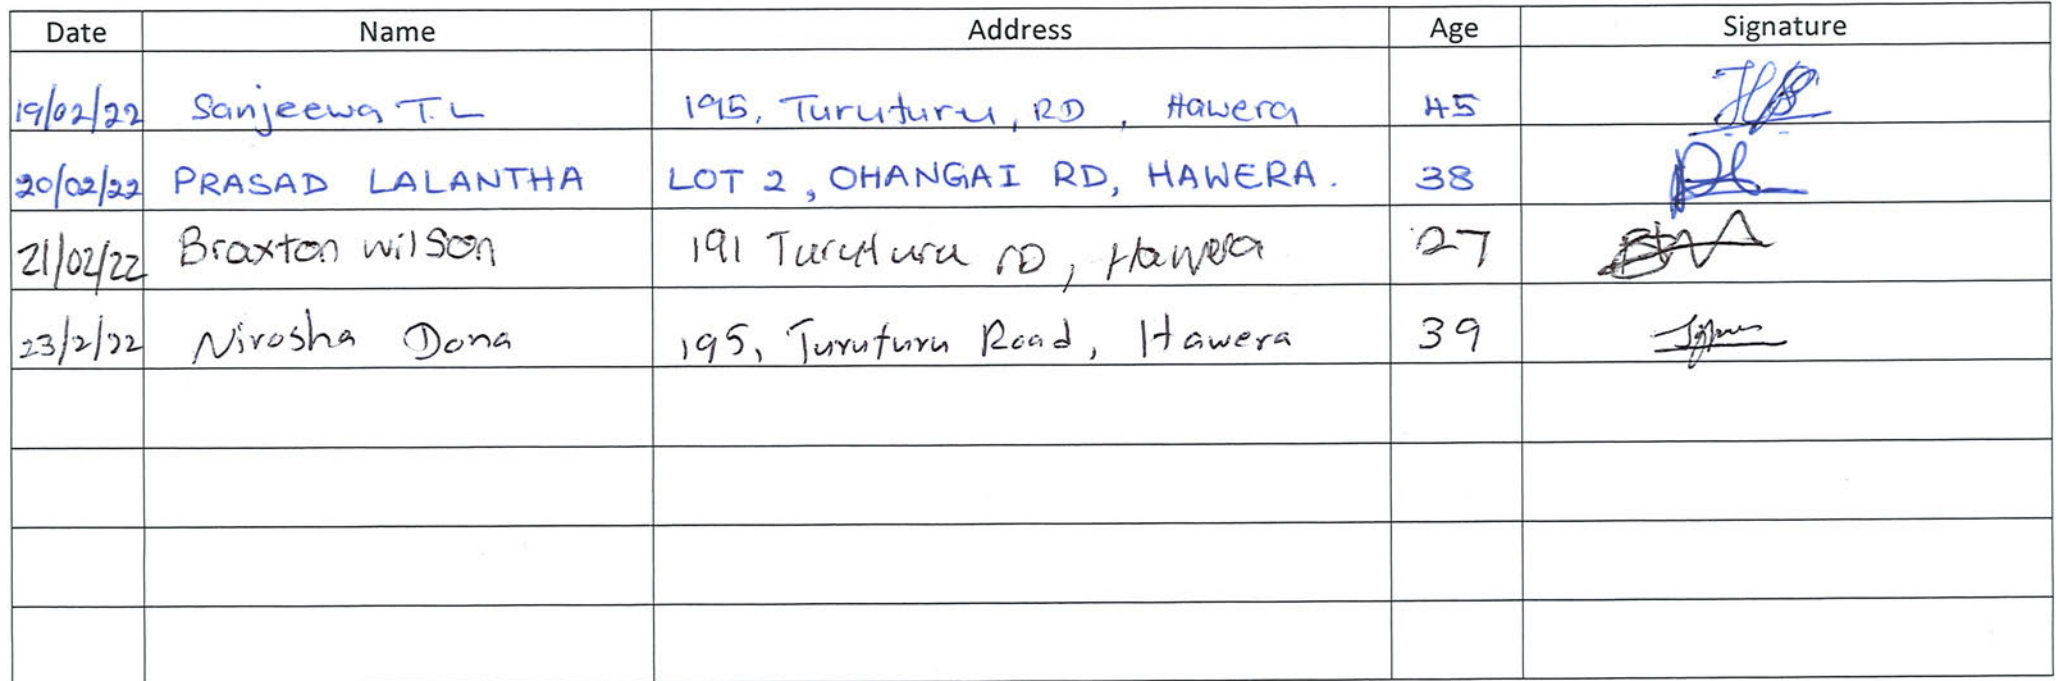 Date Name Address Age Signature
19/02/22 Sanjeewa T.L 195, Turuturu, RD, Hawera 45
20/02/22 PRASAD LALANTHA LOT 2, OHANGAI RD, HAWERA. 38
21/02/22 Braxton wilson 191 Turuturu RD, Hawera 27
23/2/22 Nirosha Dona 195, Turuturu Road, Hawera 39